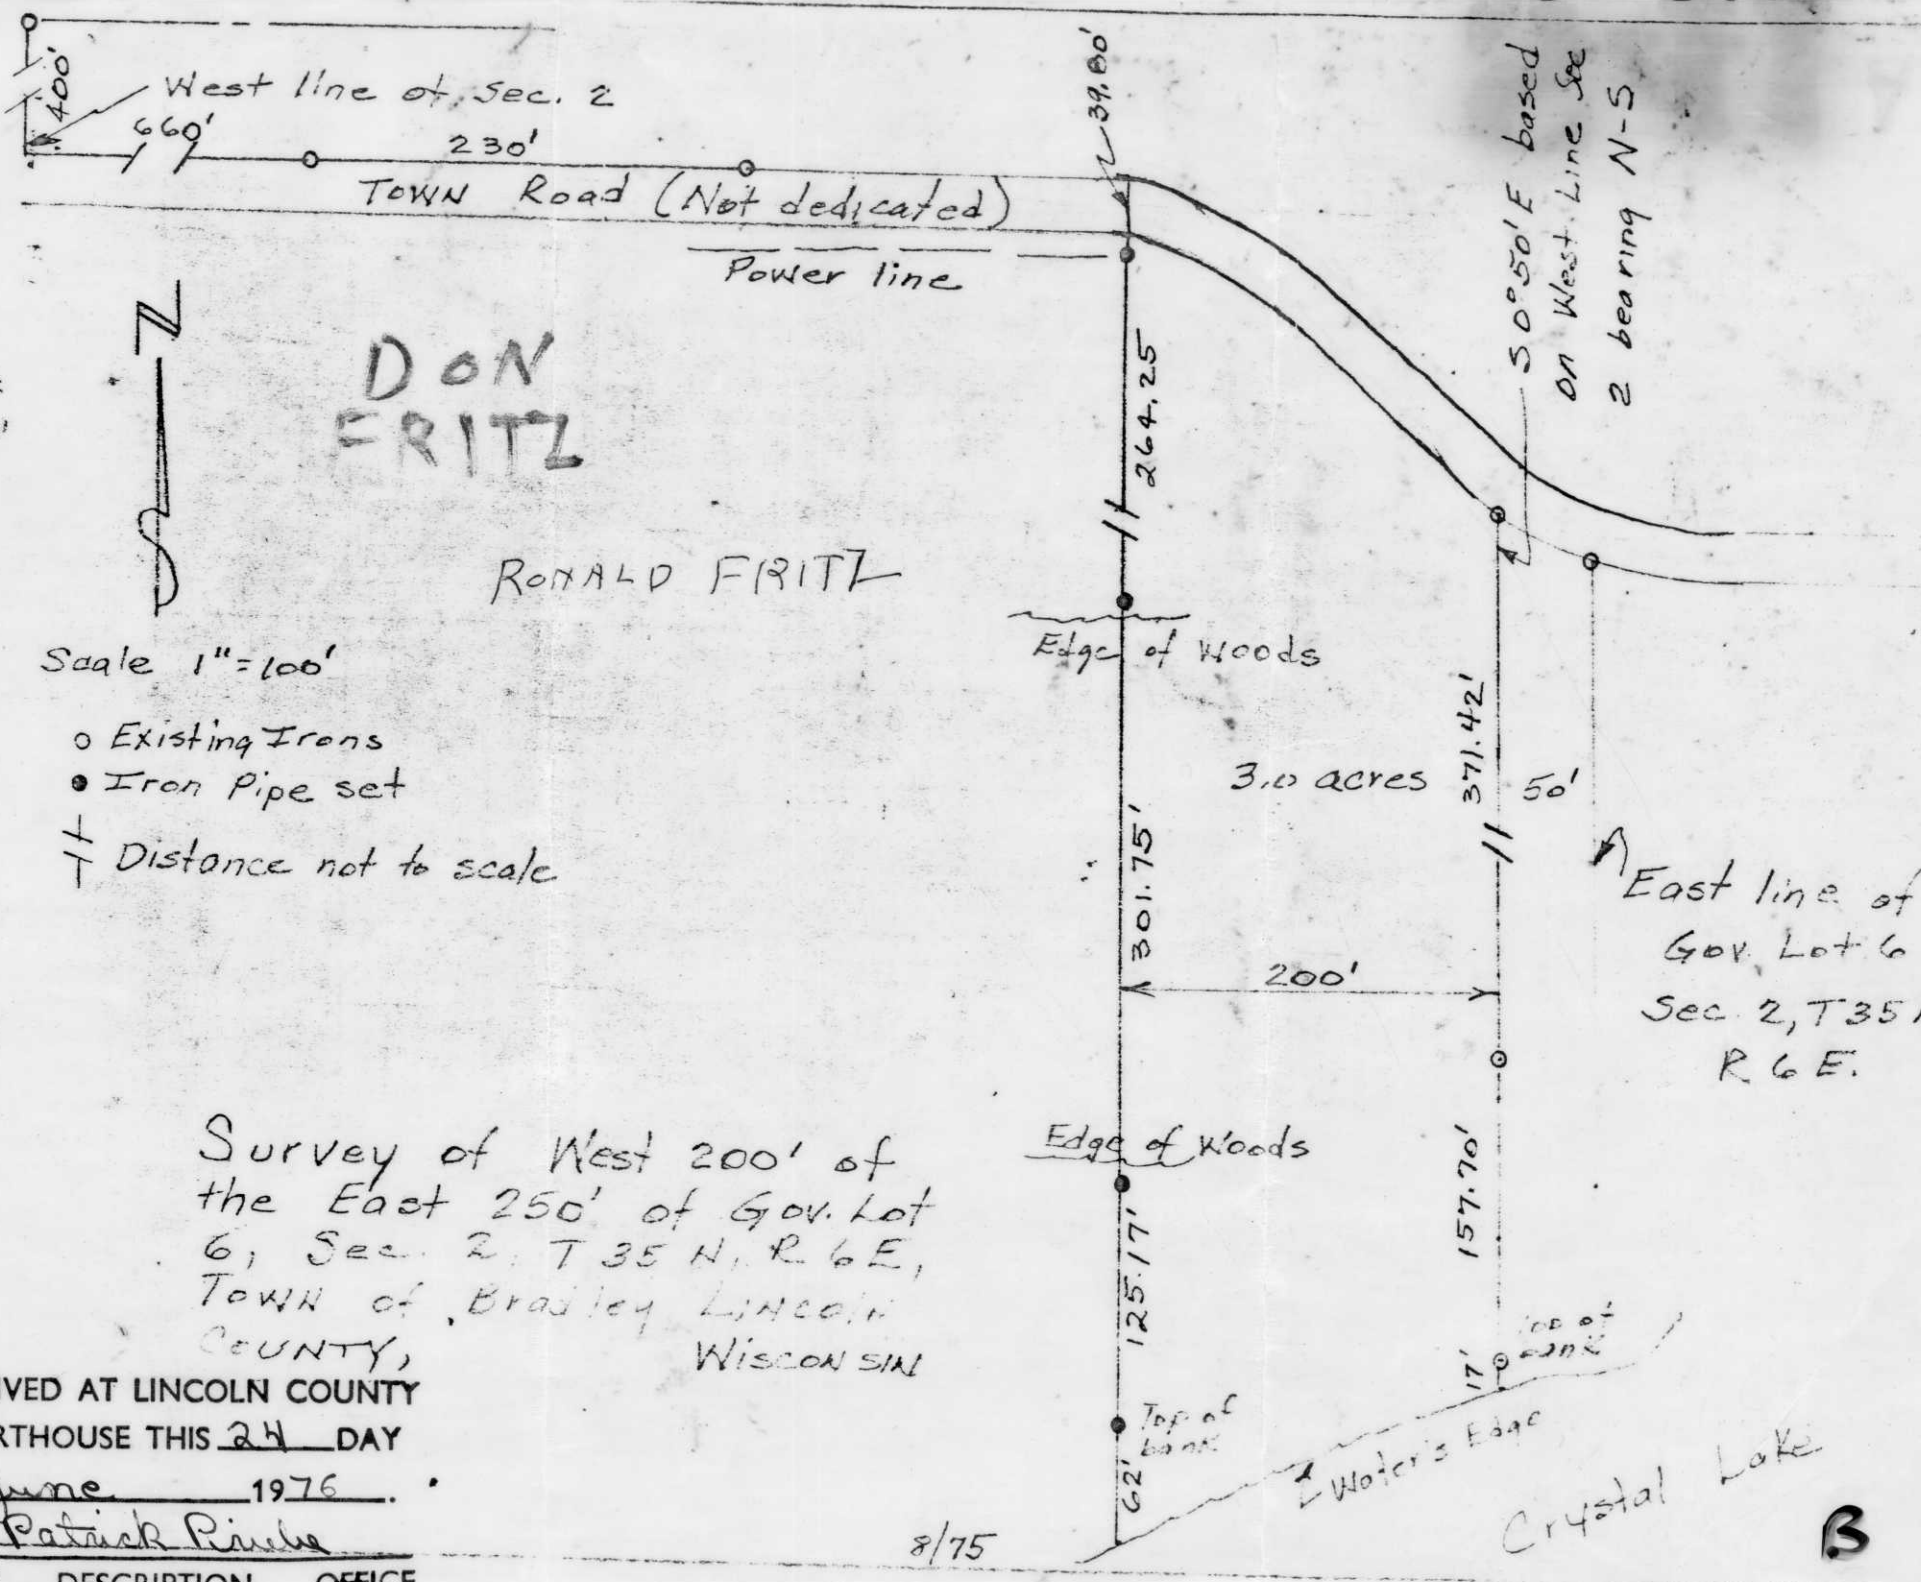 400'
West line of Sec. 2
660'
230'
39.80'
TOWN Road (Not dedicated)
Power line
S 0°50' E based
on West Line Sec
2 bearing N-S
N
S
DON
FRITZ
264.25
RONALD FRITZ
Edge of Woods
Scale 1"=100'
o Existing Irons
● Iron Pipe set
Distance not to scale
3.0 acres
371.42'
50'
301.75'
East line of
Gov. Lot 6
Sec. 2, T 35
R 6 E.
200'
Survey of West 200' of
the East 250' of Gov. Lot
6, Sec. 2, T 35 N, R 6 E,
TOWN of Bradley LINCOLN
COUNTY,
WISCONSIN
Edge of Woods
125.17'
157.70'
17'
Top of
bank
Top of
bank
62'
Water's Edge
Crystal Lake
IVED AT LINCOLN COUNTY
RTHOUSE THIS 24 DAY
June 1976.
Patrick
DESCRIPTION OFFICE
8/75
B